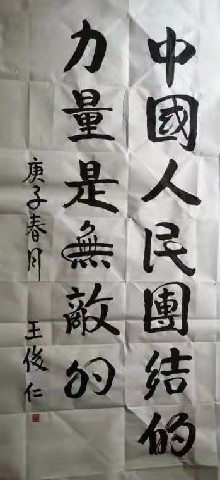 中國人民團結的
力量是無敵的
庚子春月
王俊仁